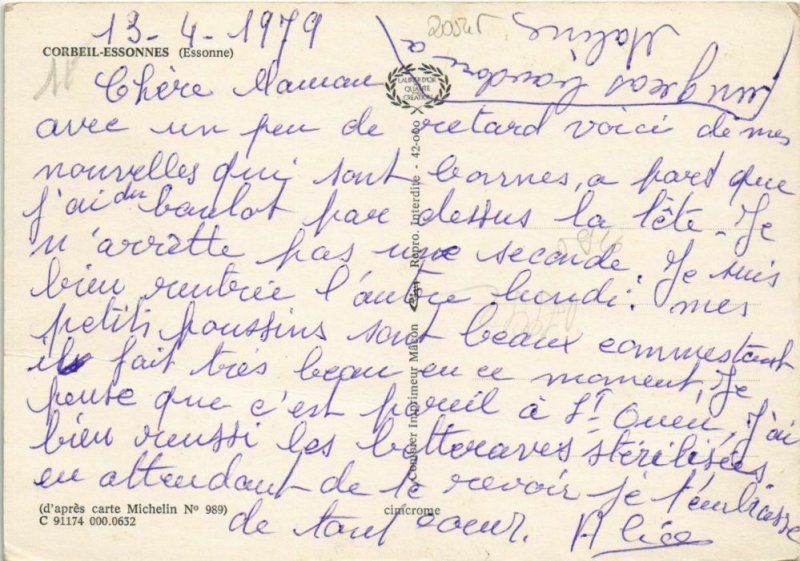 13-4-1979
CORBEIL-ESSONNES (Essonne)
Chère Maman
avec un peu de retard voici de mes
nouvelles qui sont bonnes, a part que
j'ai du boulot par dessus la tête. Je
n'arrette pas une seconde. Je suis
bien rentrée l'autre lundi. mes
petits poussins sont beaux
il fait très beau en ce moment, Je
pense que c'est pareil à St Ouen, J'ai
bien reussi les betteraves stérilisées
en attendant de te revoir je t'embrasse
de tout coeur. Alice
LAURIER D'OR
QUALITÉ
CRÉATION
Combier Imprimeur Mâcon Repro. Interdite - 42-000
(d'après carte Michelin N° 989)
C 91174 000.0632
cimcrome